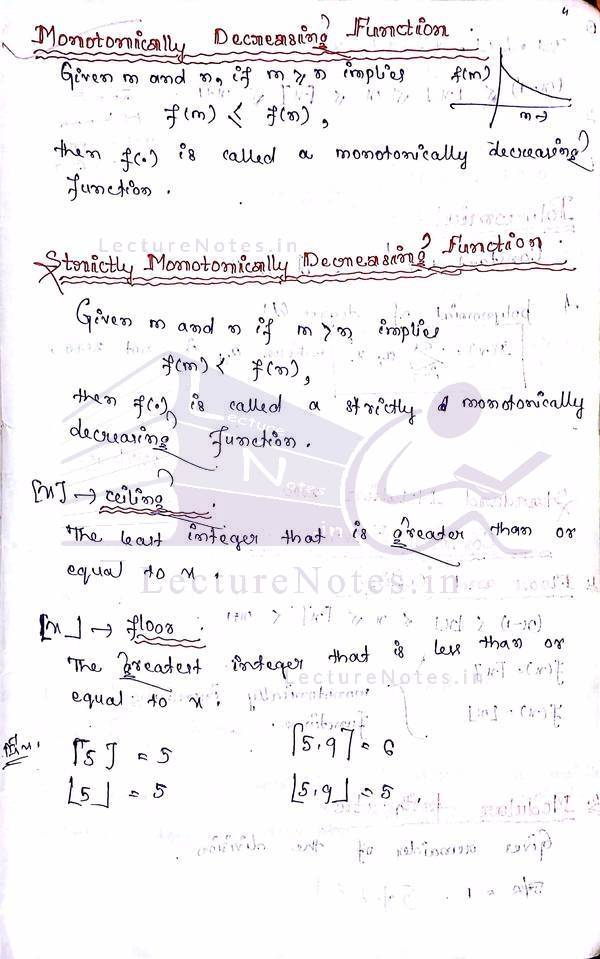 4
Monotonically Decreasing Function.
Given m and n, if m ⩾ n implies
f(m)
f(m) < f(n),
m→
then f(.) is called a monotonically decreasing
function.
LectureNotes.in
Strictly Monotonically Decreasing Function.
Given m and n if m > n implies
f(m) < f(n),
then f(.) is called a strictly monotonically
decreasing function.
Lecture
Notes
in
⌈x⌉ → ceiling.
The least integer that is greater than or
equal to x.
LectureNotes.in
⌊x⌋ → floor.
The greatest integer that is less than or
LectureNotes.in
equal to x.
Ex.
⌈5⌉ = 5 ⌈5.9⌉ = 6
⌊5⌋ = 5 ⌊5.9⌋ = 5.